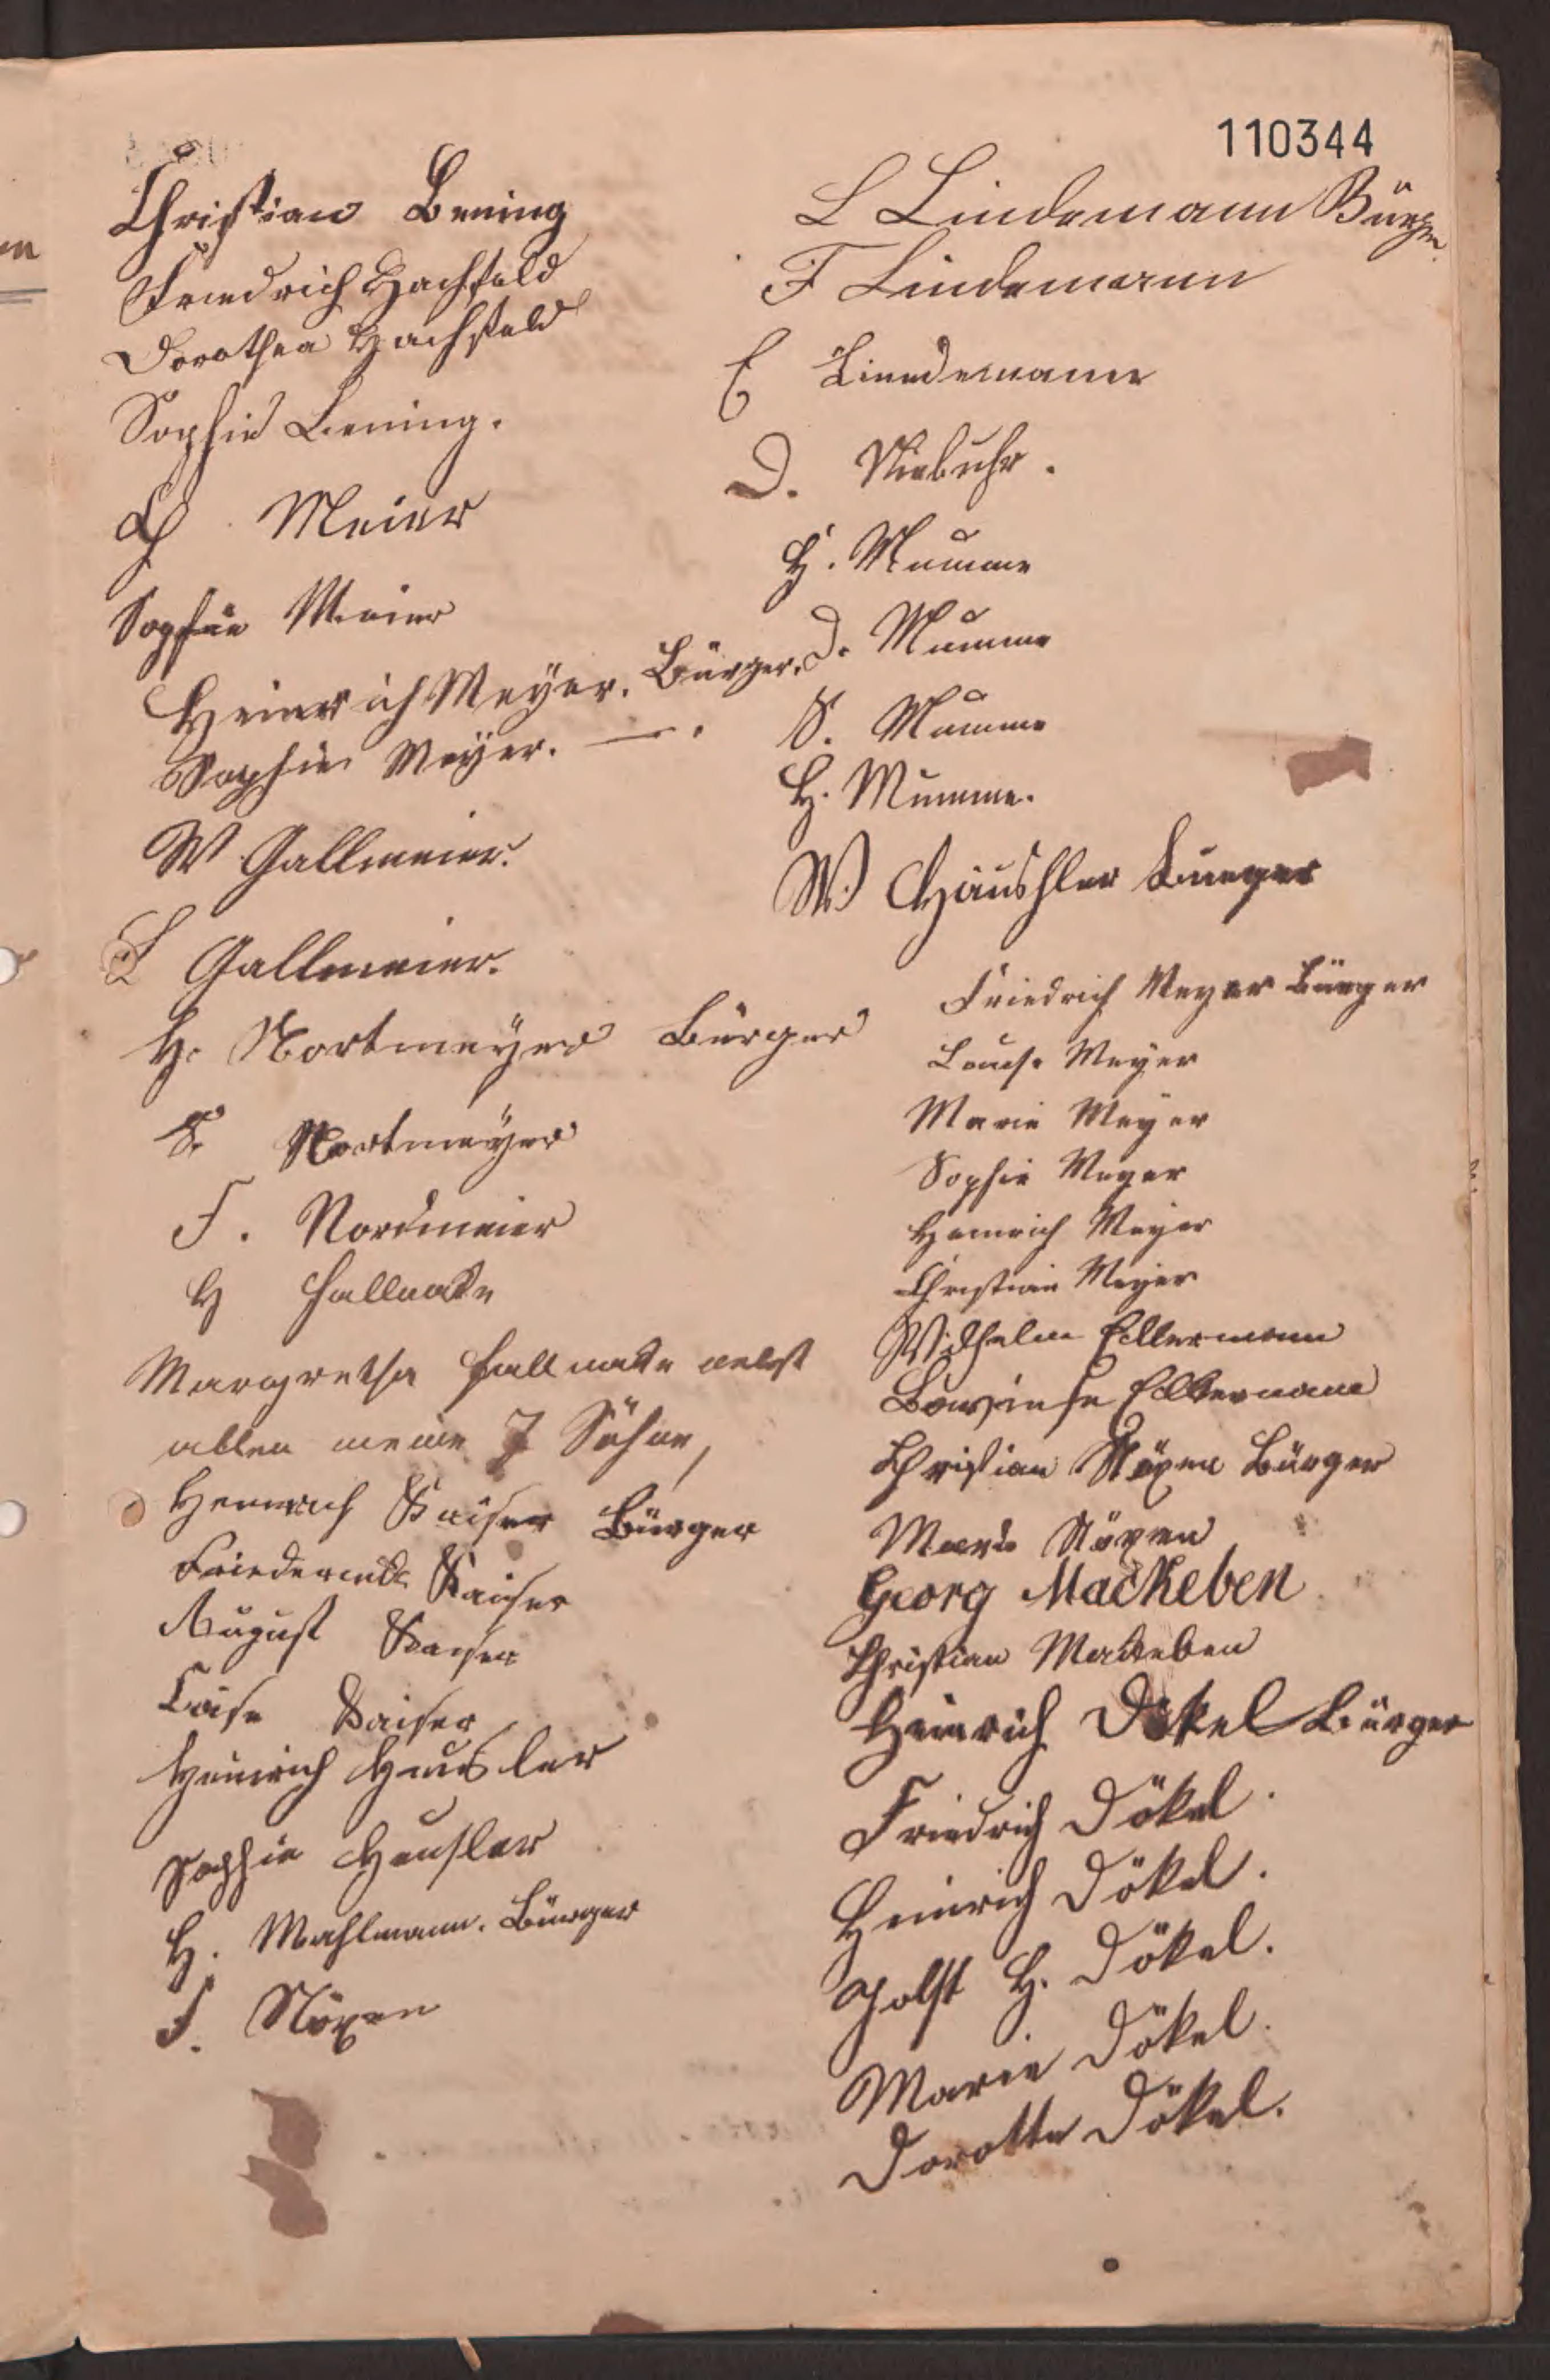 110344
Christian Bening
Friedrich Hachfeld
Dorothea Hachfeld
Sophie Bening.
Meier
Sophie Meier
Heinrich Meyer. Bürger.
Sophie Meyer. — .
W Gallmeier.
L Gallmeier.
H. Nortmeyer Bürger
S. Nortmeyer
F. Nordmeier
H Fallnake
Margretha Fallnake nebst
allen meine 7 Söhne,
Heinrich Kaiser Bürger
Kaiser
August Kaiser
Kaiser
Heinrich Hausler
Sophie Heusler
H. Mahlmann. Bürger
F. Nöxen
L Lindemann Bürger
F Lindemann
E Lindemann
D. Niebuhr.
H. Mumme
D. Mumme
S. Mumme
H. Mumme.
W. Häushler Buerger
Friedrich Meyer Bürger
Louise Meyer
Marie Meyer
Sophie Meyer
Heinrich Meyer
Christian Meyer
Wilhelm Ellermann
Ellermann
Christian Nöxen Bürger
Nöxen
Georg Mackeben
Christian Makeben
Heinrich Dökel Bürger
Friedrich Dökel.
Heinrich Dökel.
H. Dökel.
Marie Dökel.
Dorotte Dökel.